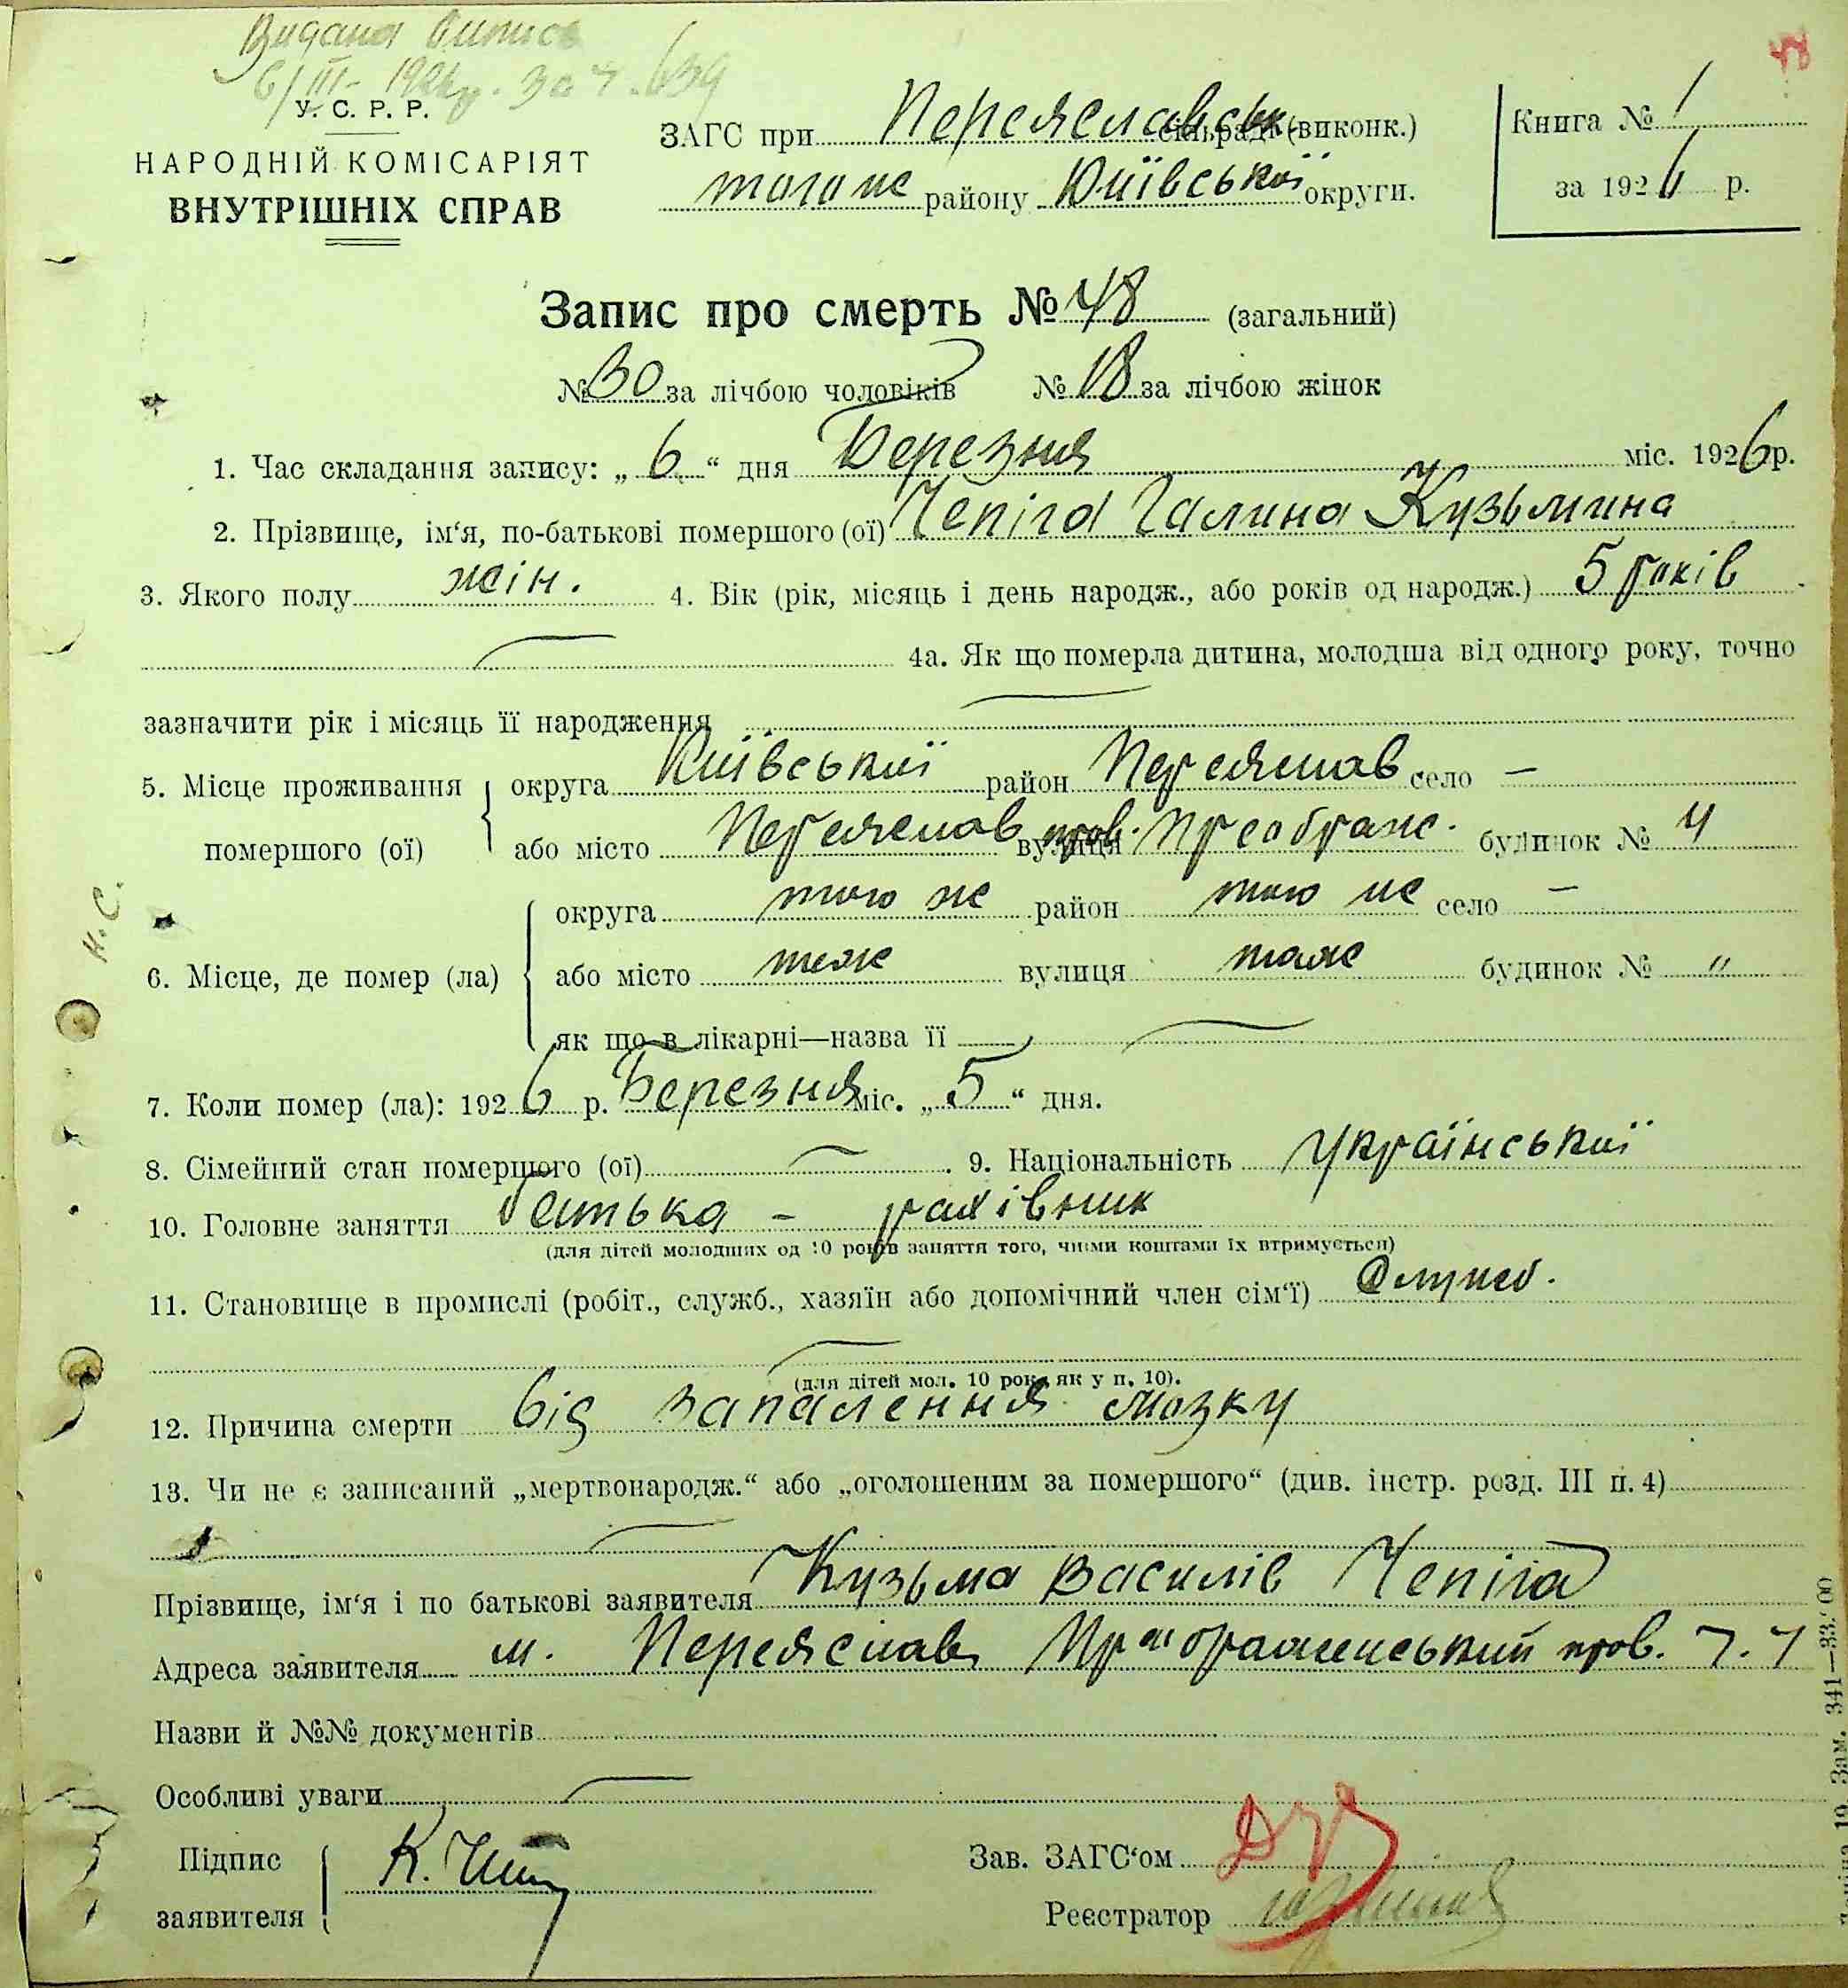 Видана виписка
6/III- 1926р. за ч. 639
48
У. С. Р. Р.
НАРОДНІЙ КОМІСАРІЯТ
ВНУТРІШНІХ СПРАВ
ЗАГС при Переяславськ. сільраді (виконк.)
того же району Київської округи.
Книга № 1
за 1926 р.
Запис про смерть № 48 (загальний)
№ 30 за лічбою чоловіків № 18 за лічбою жінок
1. Час складання запису: „ 6 “ дня Березня міс. 1926 р.
2. Прізвище, ім‘я, по-батькові помершого (ої) Чепіга Галина Кузьмина
3. Якого полу жін. 4. Вік (рік, місяць і день народж., або років од народж.) 5 років
4а. Як що померла дитина, молодша від одного року, точно
зазначити рік і місяць її народження
5. Місце проживання помершого (ої) округа Київської район Переяслав село —
або місто Переяслав вулиця пров. Преображ. будинок № 4
6. Місце, де помер (ла) округа того же район того же село —
або місто теж вулиця таже будинок № "
як що в лікарні—назва її
7. Коли помер (ла): 1926 р. Березня міс. „ 5 “ дня.
8. Сімейний стан помершого (ої) . 9. Національність Української
10. Головне заняття батька - рахівник
(для дітей молодших од 10 років заняття того, чиїми коштами їх втримується)
11. Становище в промислі (робіт., служб., хазяїн або допомічний член сім‘ї) Служб.
(для дітей мол. 10 рок. як у п. 10).
12. Причина смерти від запалення мозку
13. Чи не є записаний „мертвонародж.“ або „оголошеним за помершого“ (див. інстр. розд. III п. 4)
Прізвище, ім‘я і по батькові заявителя Кузьма Василів Чепіга
Адреса заявителя м. Переяслав Преображенський пров. ч. 4
Назви й №№ документів
Особливі уваги
Підпис заявителя К. Чепіга
Зав. ЗАГС‘ом
Реєстратор
Н. С.
Зам. 341—33.